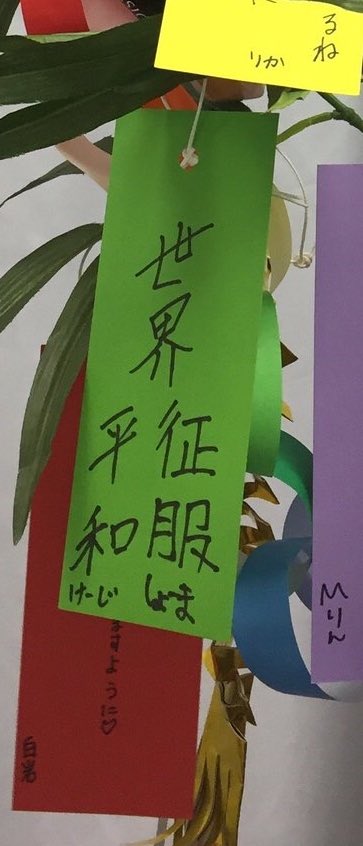 るね
りか
世界
征服
しょま
平和
けーじ
ますように♡
白岩
Mりん